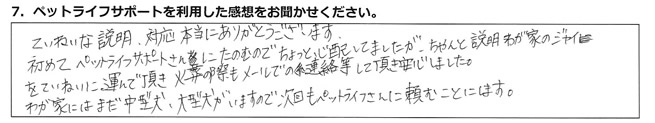 7．ペットライフサポートを利用した感想をお聞かせください。
ていねいな説明、対応本当にありがとうございます。
初めてペットライフサポートさんにたのむのでちょっと心配してましたが、ちゃんと説明 わが家のジャイ
をていねいに運んで頂き 火葬の際もメールでの連絡等して頂き安心しました。
わが家にはまだ中型犬、大型犬がいますので次回もペットライフさんに頼むことにします。